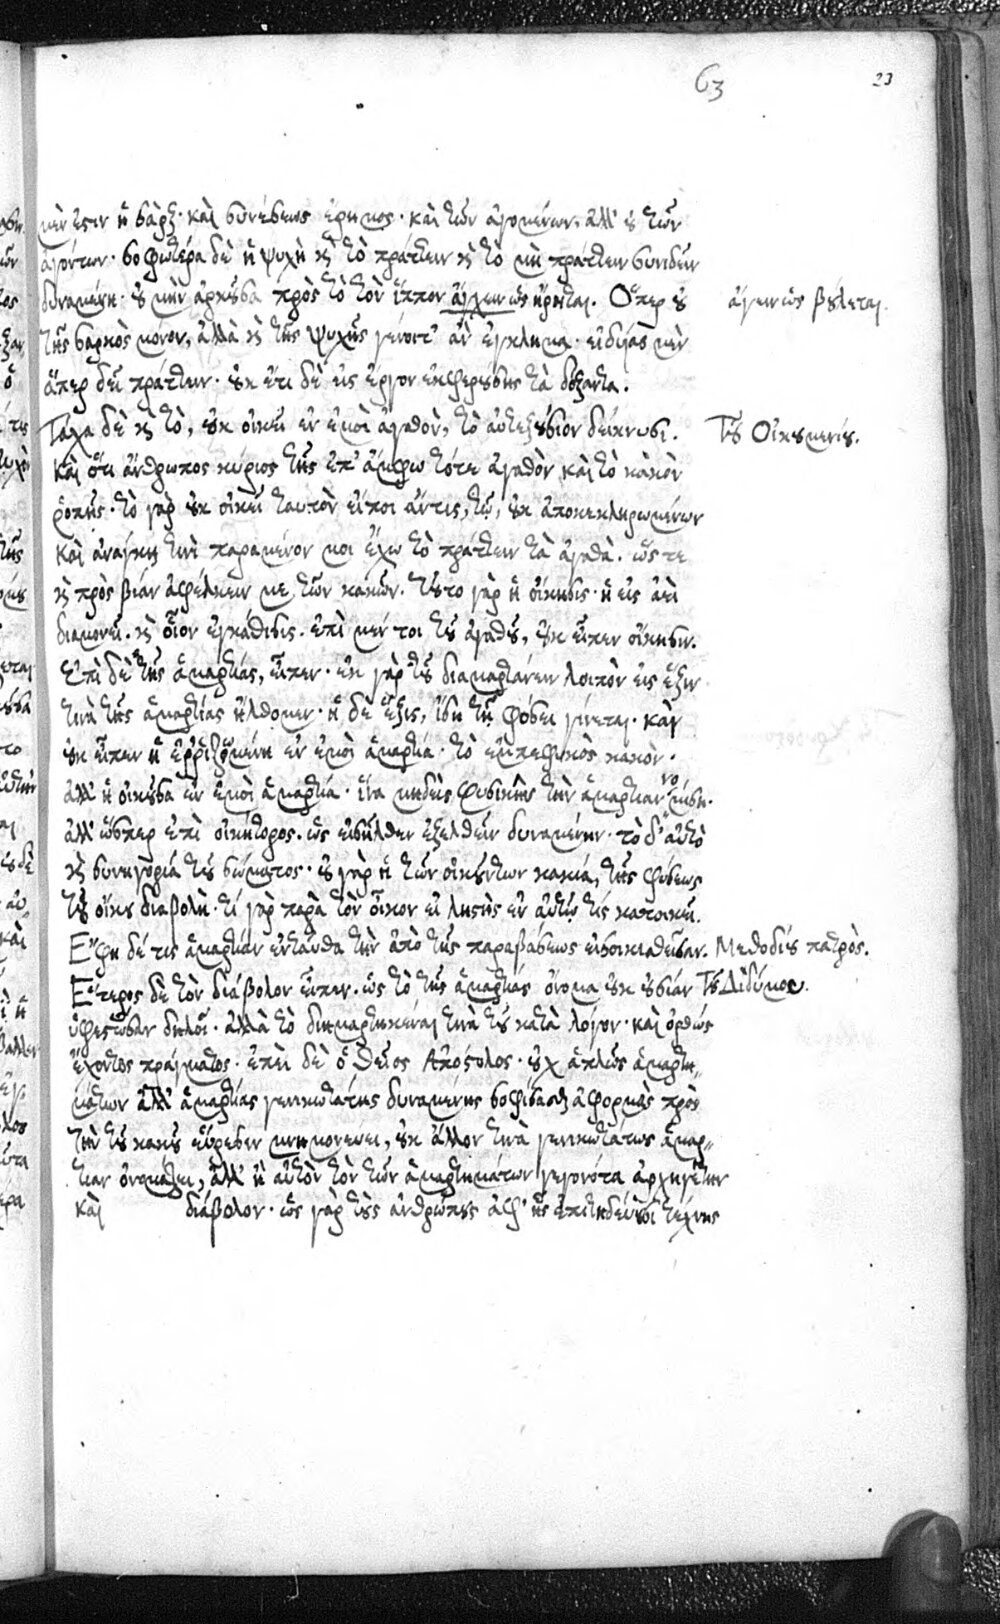 63
23
μέν ἐστιν ἡ σὰρξ· καὶ συνέσεως ἔρημος· καὶ τῶν ἀγομένων, ἀλλ' οὐ τῶν
ἀγόντων· σοφωτέρα δὲ ἡ ψυχὴ καὶ τὸ πράττειν καὶ τὸ μὴ πράττειν συνιδεῖν
δυναμένη· οὐ μὴν ἀρκοῦσα πρὸς τὸ τὸν ἵππον ἄγχειν ὡς ᾕρηται. Ὅπερ οὐ
ἄγειν ὡς βούλεται.
τῆς σαρκὸς μόνον, ἀλλὰ καὶ τῆς ψυχῆς γένοιτ' ἂν ἔγκλημα· εἰδυίας μὲν
ἅπερ δεῖ πράττειν· οὐκ ἔτι δὲ εἰς ἔργον ἐκφερούσης τὰ δόξαντα.
Τάχα δὲ καὶ τὸ, οὐκ οἰκεῖ ἐν ἐμοὶ ἀγαθὸν, τὸ αὐτεξούσιον δείκνυσι.
Τοῦ Οἰκουμενίου.
Καὶ ὅτι ἄνθρωπος κύριος τῆς ἐπ' ἄμφω τότε ἀγαθὸν καὶ τὸ κακὸν
ῥοπῆς· τὸ γὰρ οὐκ οἰκεῖ ταυτὸν εἴποι ἄν τις, τῷ, οὐκ ἀποκεκληρωμένων
καὶ ἀνάγκῃ τινὶ παραμένον μοι ἔχω τὸ πράττειν τὰ ἀγαθὰ. ὥστε
καὶ πρὸς βίαν ἀφέλκειν με τῶν κακῶν. τοῦτο γὰρ ἡ οἴκησις· ἡ εἰς ἀεὶ
διαμονεῖ. καὶ οἷον ἐγκάθισις. ἐπὶ μέν τοι τοῦ ἀγαθοῦ, οὐκ εἶπεν οἴκησιν.
ἐπὶ δὲ τῆς ἁμαρτίας, εἶπεν· ἐκ γὰρ τοῦ διαμαρτάνειν λοιπὸν εἰς ἕξιν
τινὰ τῆς ἁμαρτίας ἤλθομεν· ἡ δὲ ἕξις, ἴση τῇ φύσει γίνεται· κἂν
οὐκ εἶπεν ἡ ἐρριζωμένη ἐν ἐμοὶ ἁμαρτία· τὸ ἐμπεφυκὸς κακὸν·
ἀλλ' ἡ οἰκοῦσα ἐν ἐμοὶ ἁμαρτία· ἵνα μηδεὶς φυσικὴν τὴν ἁμαρτίαν νομίσῃ.
ἀλλ' ὥσπερ ἐπὶ οἰκήτορος. ὡς εἰσῆλθεν ἐξελθεῖν δυναμένην· τὸ δ' αὐτὸ
καὶ συνηγορία τοῦ σώματος· οὐ γὰρ ἡ τῶν οἰκούντων κακία, τῆς φύσεως
τοῦ οἴκου διαβολὴ· τί γὰρ παρὰ τὸν οἶκον εἰ λῃστὴς ἐν αὐτῷ τίς κατοικεῖ.
Ἔφη δέ τις ἁμαρτίαν ἐνταῦθα τὴν ἀπὸ τῆς παραβάσεως εἰσοικισθεῖσαν.
Μεθοδίου πατρὸς.
Ἕτερος δὲ τὸν διάβολον εἶπεν. ὡς τὸ τῆς ἁμαρτίας ὄνομα οὐκ οὐσίαν
Τοῦ Διδύμου.
ὑφεστῶσαν δηλοῖ· ἀλλὰ τὸ διημαρτηκέναι τινὰ τοῦ κατὰ λόγον· καὶ ὀρθῶς
ἔχοντος πράγματος· ἐπεὶ δὲ ὁ θεῖος Ἀπόστολος· οὐχ ἁπλῶς ἁμαρτη-
μάτων ἀλλ' ἁμαρτίας γενικωτάτης δυναμένης σοφίσασθαι ἀφορμὰς πρὸς
τὴν τοῦ κακοῦ εὕρεσιν μνημονεύει, οὐκ ἄλλον τινὰ γενικωτάτως ἁμαρ-
τίαν ὀνομάζει, ἀλλ' ἢ αὐτὸν τὸν τῶν ἁμαρτημάτων γεγονότα ἀρχηγέτην
καὶ διάβολον· ὡς γὰρ τοὺς ἀνθρώπους ἀφ' ἧς ἐπιτηδεύουσι τέχνης